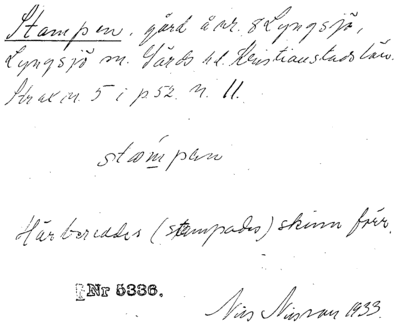 Stampen, gård å nr. 8 Lyngsjö,
Lyngsjö sn. Gärds hd. Kristianstads län.
Strax n. 5 i p 52. n. 11.
stampen
Här bereddes (stampades) skinn förr.
Nr 5336.
Nils Nilsson 1933.